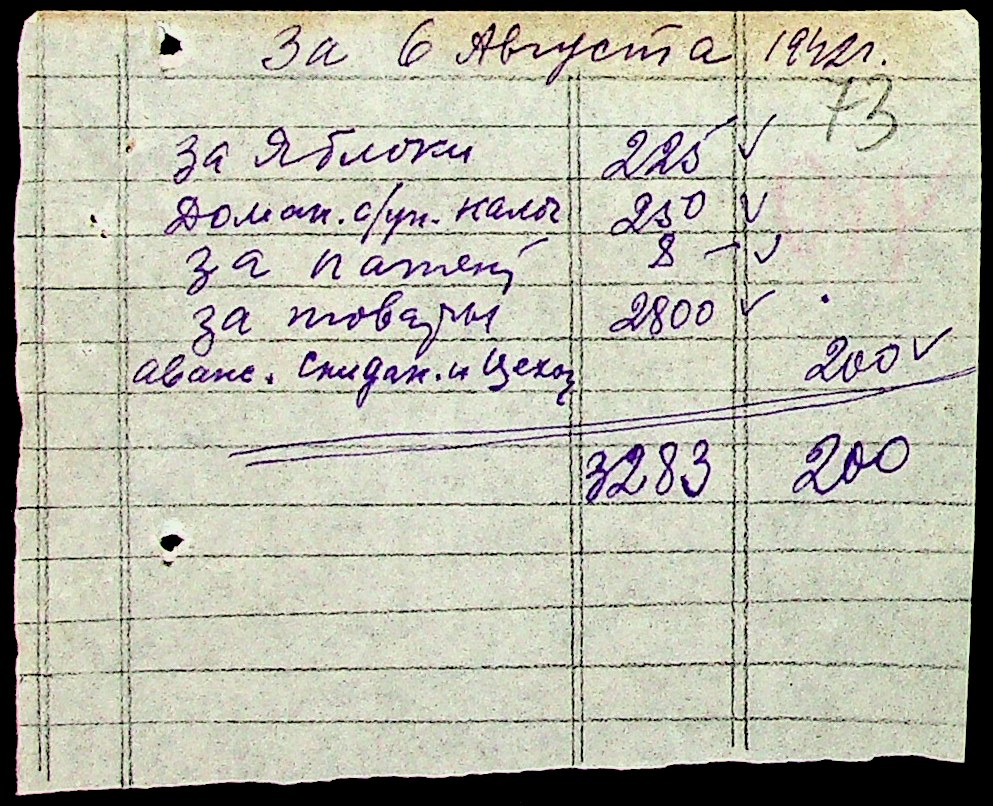 За 6 Августа 1942г.
73
за Яблоки 225 ✓
Доман. с/уп. налог 250 ✓
за патент 8 — ✓
за товары 2800 ✓
аванс. и 200 ✓
3283 200